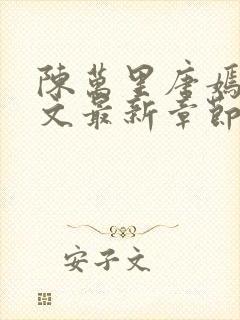 陳萬里唐嫣
文最新章節
安子文